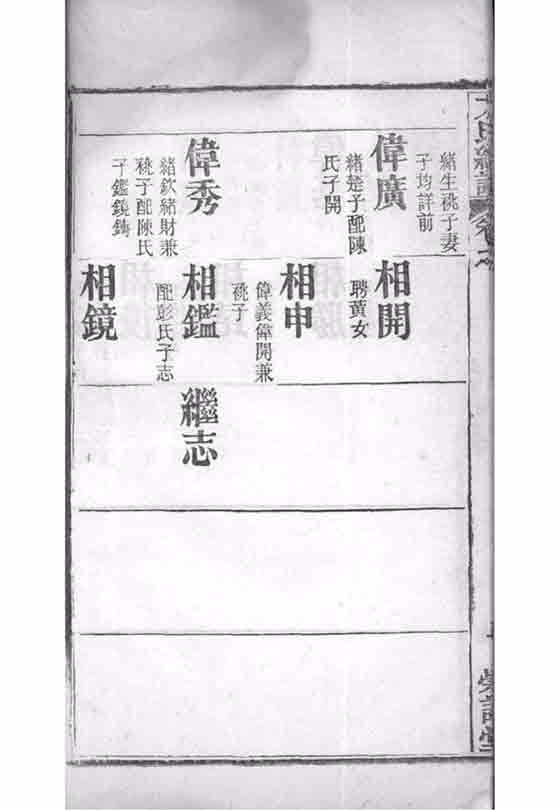 緒生祧子妻
子均詳前
偉廣
緒楚子配陳
氏子開
偉秀
緒欽緒財兼
祧子配陳氏
子鑑鏡鑄
相開
聘黃女
相申
偉義偉開兼
祧子
相鑑
配彭氏子志
相鏡
繼志